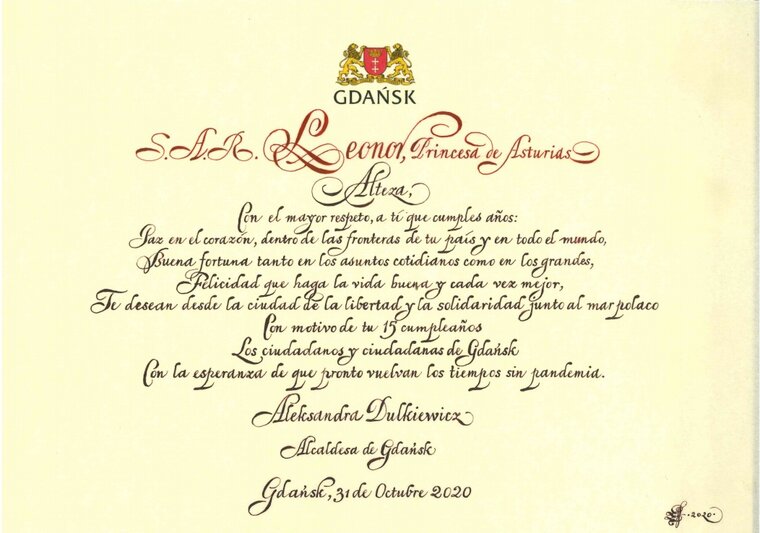 GDAŃSK
S.A.R. Leonor, Princesa de Asturias
Alteza,
Con el mayor respeto, a ti que cumples años:
Paz en el corazón, dentro de las fronteras de tu país y en todo el mundo,
Buena fortuna tanto en los asuntos cotidianos como en los grandes,
Felicidad que haga la vida buena y cada vez mejor,
Te desean desde la ciudad de la libertad y la solidaridad junto al mar polaco
Con motivo de tu 15 cumpleaños
Los ciudadanos y ciudadanas de Gdańsk
Con la esperanza de que pronto vuelvan los tiempos sin pandemia.
Aleksandra Dulkiewicz
Alcaldesa de Gdańsk
Gdańsk, 31 de Octubre 2020
·2020·